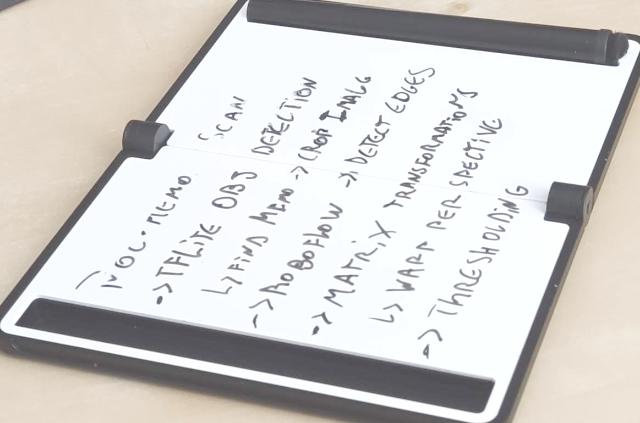 ROC·MEMO SCAN
-> TFLITE OBJ DETECTION
↳ FIND MEMO -> CROP IMAGE
-> ROBOFLOW -> DETECT EDGES
-> MATRIX TRANSFORMATIONS
↳ WARP PERSPECTIVE
-> THRESHOLDING